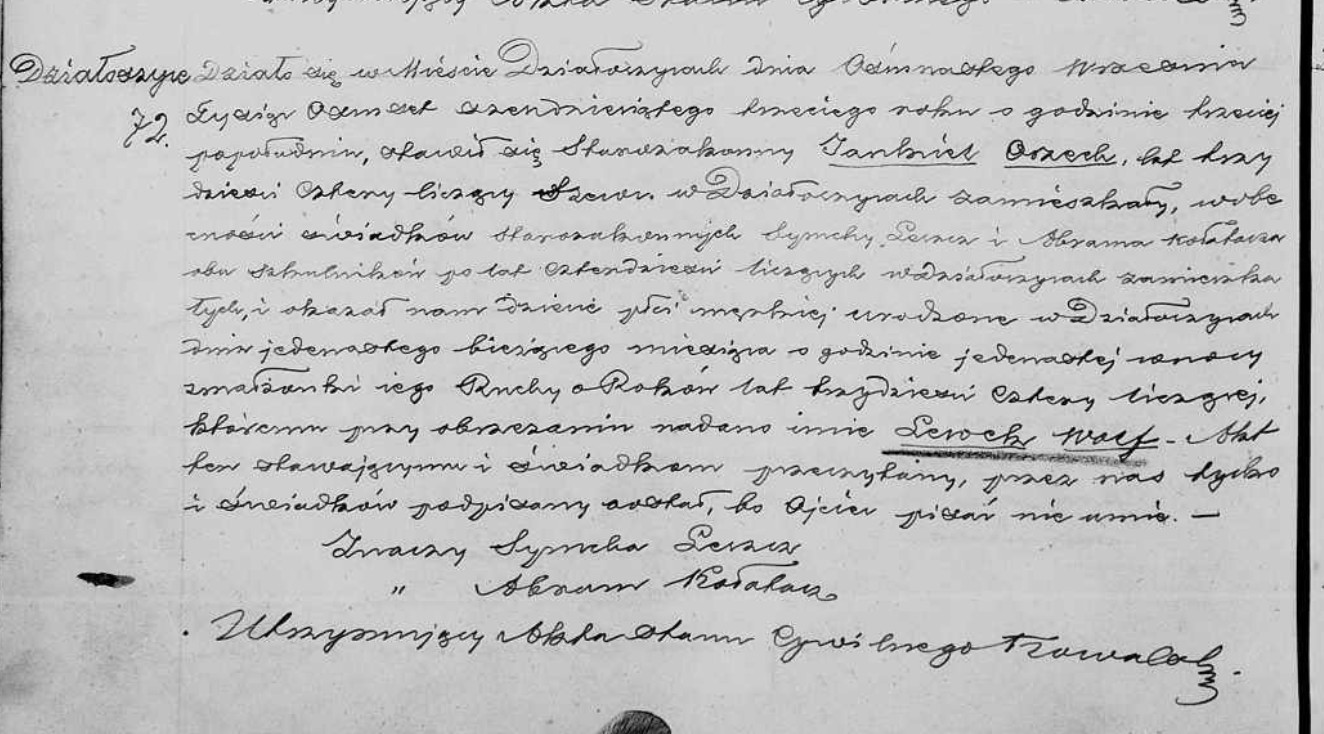 Akta Stanu Cywilnego
Działoszyce Działo się w Mieście Działoszycach dnia Ośmnastego Września
72. Tysiąc Ośmset szendziesiątego trzeciego roku o godzinie trzeciej
popołudniu, stawił się Starozakonny Jankiel Orzech, lat trzy
dzieści cztery liczący Szewc w Działoszycach zamieszkały, wobe
cności świadków Starozakonnych Symchy Leszcz i Abrama Kołatacza
obu szkolników po lat czterdzieści liczących w Działoszycach zamieszka
łych, i okazał nam dziecie płci męzkiej urodzone w Działoszycach
dnia jedenastego bieżącego miesiąca o godzinie jedenastej wnocy
zmałżonki iego Ruchy o Roków lat trzydzieści cztery liczącej,
któremu przy obrzezaniu nadano imie Lewek Wolf – Akt
ten stawającymu i świadkom przeczytany, przez nas tylko
i świadków podpisany został, bo Ojciec pisać nie umie. —
Znaczy Symcha Leszcz
" Abram Kołatacz
Utrzymujący Akta Stanu Cywilnego Kowalski